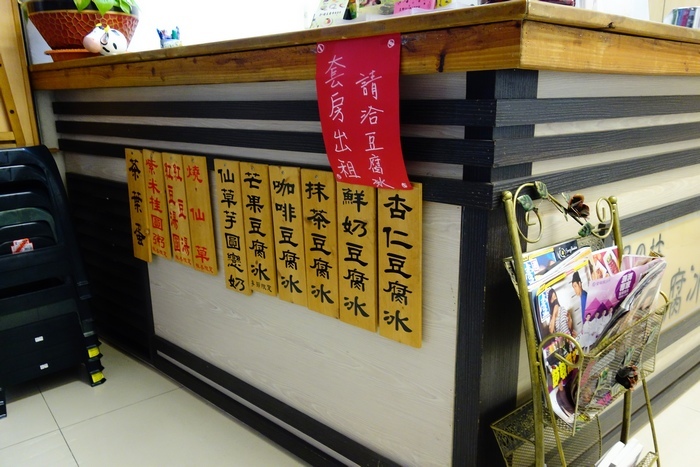 套房出租
請洽豆腐冰
茶葉蛋
紫米桂圓粥
紅豆湯圓
紅豆湯
燒仙草
仙草芋圓戀奶
芒果豆腐冰
咖啡豆腐冰
抹茶豆腐冰
鮮奶豆腐冰
杏仁豆腐冰
腐冰